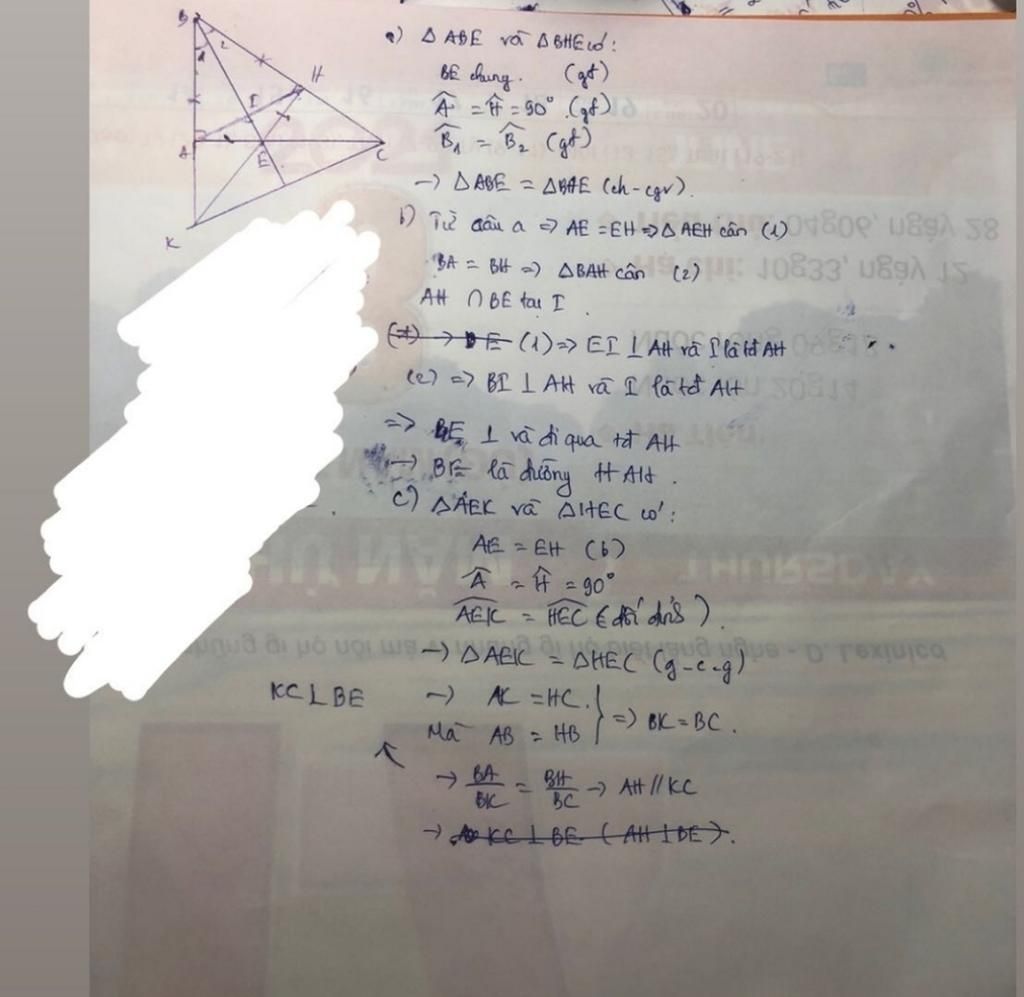 B
1 2
H
I
A
E
C
K
a) Δ ABE và Δ BHE có:
BE chung. (gt)
Â = Ĥ = 90° (gt)
B̂₁ = B̂₂ (gt)
→ Δ ABE = Δ BAE (ch - cgv).
b) Từ câu a => AE = EH => Δ AEH cân (1)
BA = BH => Δ BAH cân (2)
AH ∩ BE tại I
(1) => EI ⊥ AH và I là tđ AH
(2) => BI ⊥ AH và I là tđ AH
=> BE ⊥ và đi qua tđ AH
→ BE là đường tt AH.
c) Δ AEK và Δ HEC có:
AE = EH (b)
Â = Ĥ = 90°
AEK = HEC (đối đỉnh).
→ Δ AEK = Δ HEC (g-c-g)
KC ⊥ BE → AK = HC. } => BK = BC.
Mà AB = HB
→ BA/BK = BH/BC → AH // KC
→ KC ⊥ BE (AH ⊥ BE).
04g06, ngày 28
10g33, ngày 12
THỨ NĂM
THURSDAY